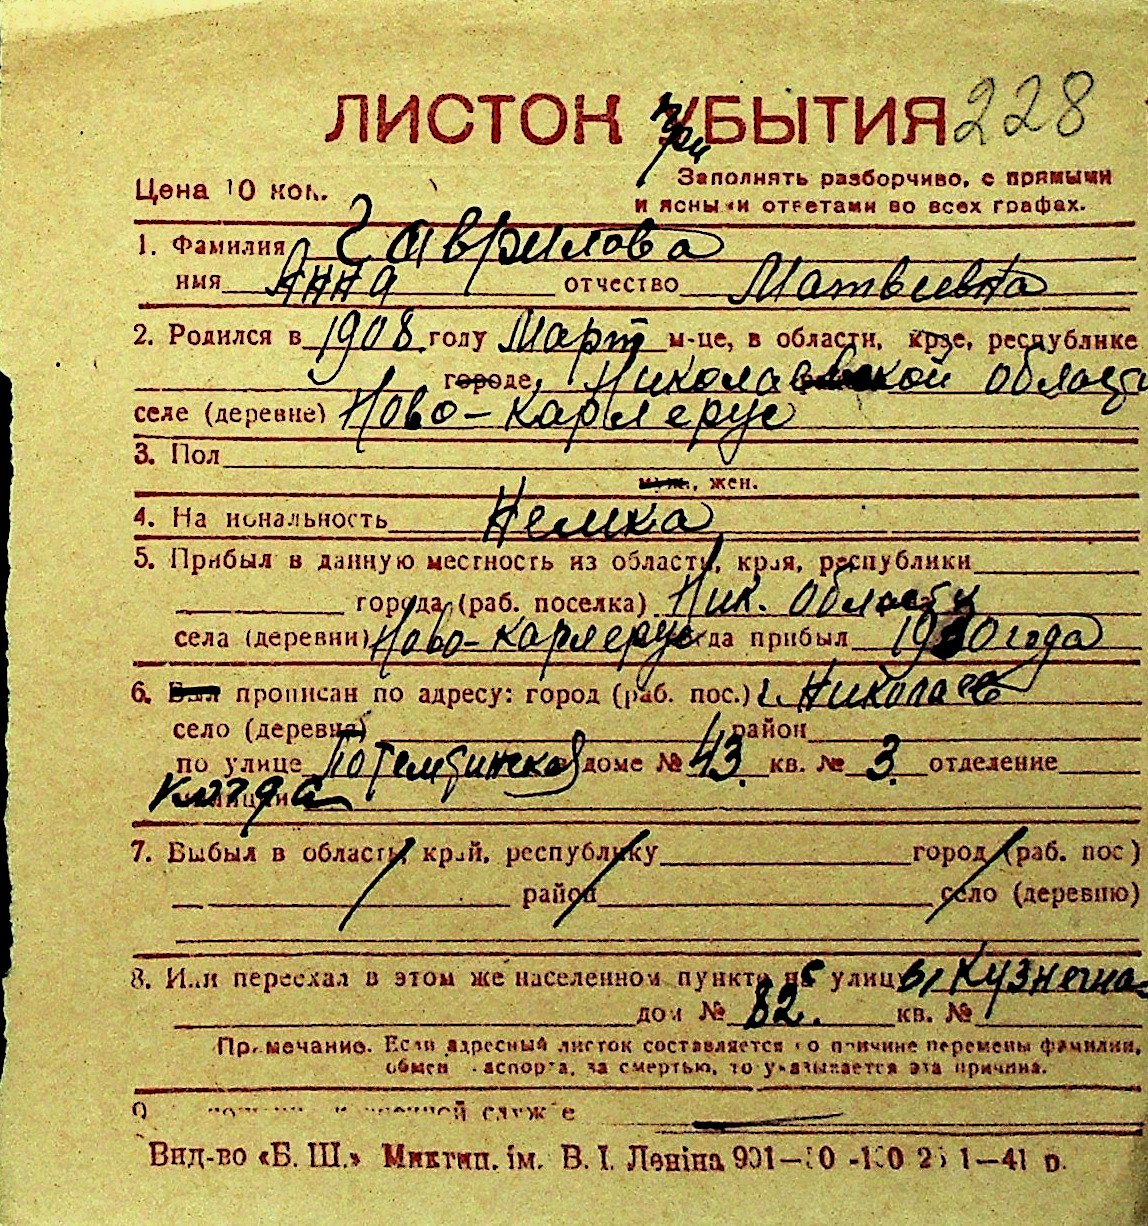 ЛИСТОК УБЫТИЯ 228
при
Цена 10 коп. Заполнять разборчиво, с прямыми
и ясными ответами во всех графах.
1. Фамилия Гаврилова
имя Анна отчество Матвеевна
2. Родился в 1908 году Март м-це, в области, крае, республике
городе, Николаевской области
селе (деревне) Ново-Карлеруе
3. Пол
муж., жен.
4. Национальность Немка
5. Прибыл в данную местность из области, края, республики
города (раб. поселка) Ник. области
села (деревни) Ново-Карлеруе когда прибыл 1930 года
6. Был прописан по адресу: город (раб. пос.) г. Николаев
село (деревня) район
по улице Потемкинской доме № 43. кв. № 3. отделение
милиции
7. Выбыл в область, край, республику город (раб. пос)
район село (деревню)
8. Или переехал в этом же населенном пункте на улицу
дом № 82. кв. №
Примечание. Если адресный листок составляется по причине перемены фамилии,
обмен паспорта, за смертью, то указывается эта причина.
9 военной службе
Вид-во «Б. Ш.» Миктип. ім. В. І. Леніна 901— 1—41 р.